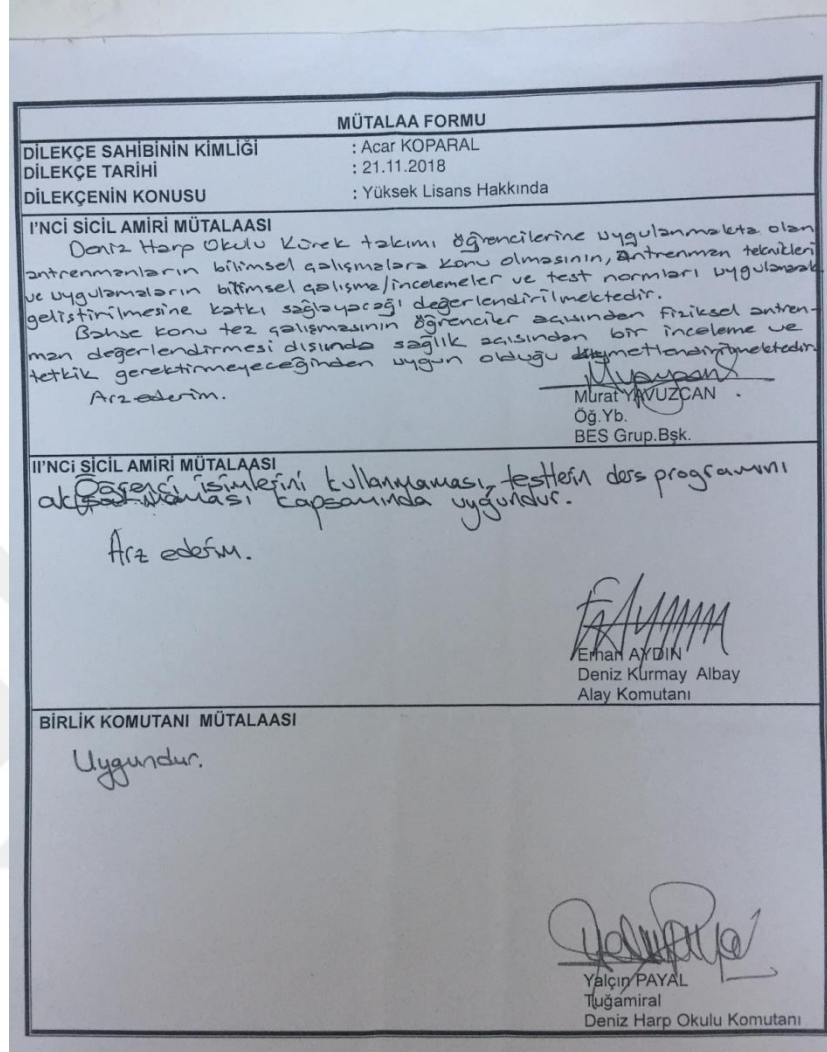 MÜTALAA FORMU
DİLEKÇE SAHİBİNİN KİMLİĞİ : Acar KOPARAL
DİLEKÇE TARİHİ : 21.11.2018
DİLEKÇENİN KONUSU : Yüksek Lisans Hakkında
I'NCİ SİCİL AMİRİ MÜTALAASI
Deniz Harp Okulu Kürek takımı öğrencilerine uygulanmakta olan
antrenmanların bilimsel çalışmalara konu olmasının, Antrenman teknikleri
ve uygulamaların bilimsel çalışma/incelemeler ve test normları uygulanarak
geliştirilmesine katkı sağlayacağı değerlendirilmektedir.
Bahse konu tez çalışmasının öğrenciler açısından fiziksel antren-
man değerlendirmesi dışında sağlık açısından bir inceleme ve
tetkik gerektirmeyeceğinden uygun olduğu kıymetlendirilmektedir.
Arz ederim.
Murat YAVUZCAN
Öğ.Yb.
BES Grup.Bşk.
II'NCİ SİCİL AMİRİ MÜTALAASI
Öğrenci isimlerini kullanmaması, testlerin ders programını
aksatmaması kapsamında uygundur.
Arz ederim.
Erhan AYDIN
Deniz Kurmay Albay
Alay Komutanı
BİRLİK KOMUTANI MÜTALAASI
Uygundur.
Yalçın PAYAL
Tuğamiral
Deniz Harp Okulu Komutanı